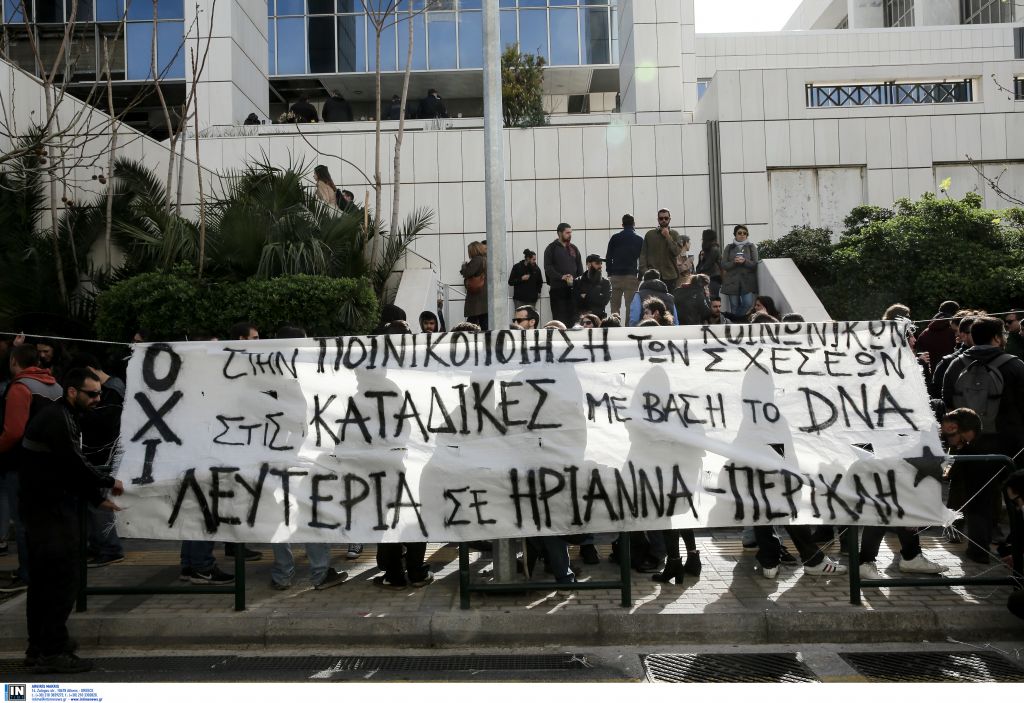 ΟΧΙ ΣΤΗΝ ΠΟΙΝΙΚΟΠΟΙΗΣΗ ΤΩΝ ΚΟΙΝΩΝΙΚΩΝ ΣΧΕΣΕΩΝ
ΣΤΙΣ ΚΑΤΑΔΙΚΕΣ ΜΕ ΒΑΣΗ ΤΟ DNA
ΛΕΥΤΕΡΙΑ ΣΕ ΗΡΙΑΝΝΑ - ΠΕΡΙΚΛΗ
IN